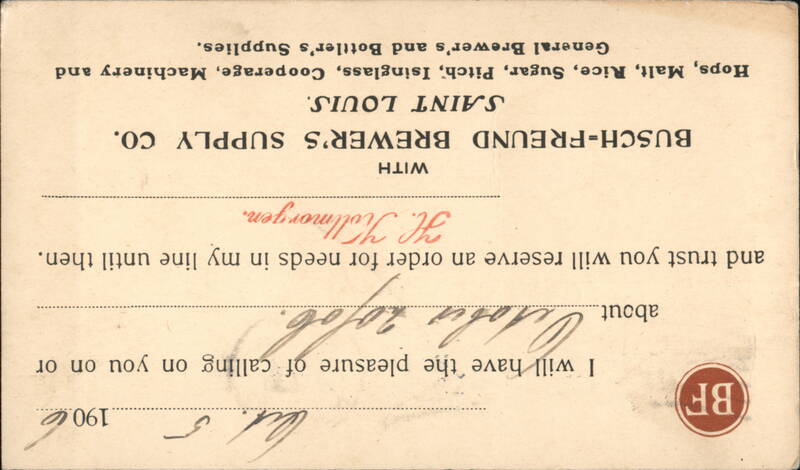 BF
Oct. 5 1906
I will have the pleasure of calling on you on or
about October 20/06.
and trust you will reserve an order for needs in my line until then.
H. Kollmorgen.
WITH
BUSCH=FREUND BREWER'S SUPPLY CO.
SAINT LOUIS.
Hops, Malt, Rice, Sugar, Pitch, Isinglass, Cooperage, Machinery and
General Brewer's and Bottler's Supplies.